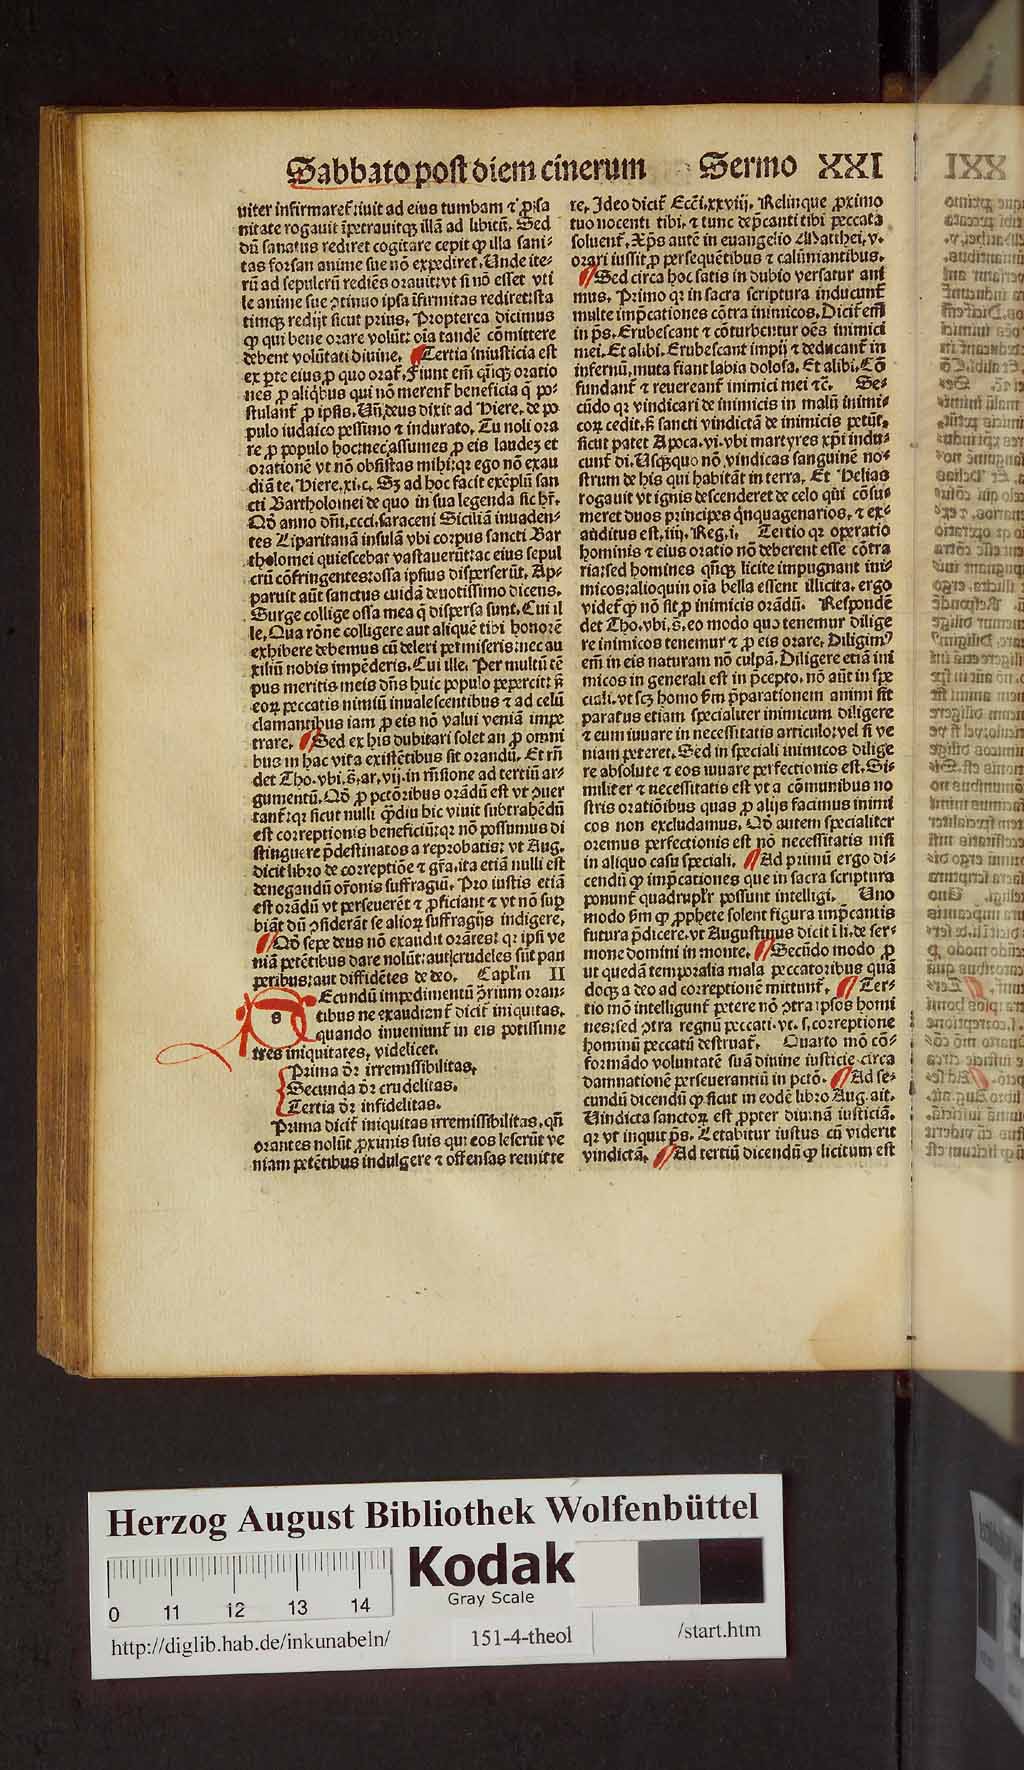 Sabbato post diem cinerum Sermo XXI
uiter infirmaret᷑: iuit ad eius tumbam ⁊ ꝓ ipsa
nitate rogauit īpetrauitqꝫ illā ad libitū. Sed
dū sanatus rediret cogitare cepit ꝙ illa sani-
tas forsan anime sue nō expediret. Unde ite-
rū ad sepulcrū rediēs orauit: vt si nō esset vti
le anime sue ꝯtinuo ipsa īfirmitas rediret: sta
timqꝫ redijt sicut prius. Propterea dicimus
ꝙ qui bene orare volūt: oīa tandē cōmittere
debent volūtati diuine. Tertia iniusticia est
ex ꝑte eius ꝓ quo orat᷑. Fiunt em̄ qn̄qꝫ oratio
nes ꝓ aliqbus qui nō merent᷑ beneficia q̄ po-
stulant᷑ ꝓ ipsis. Un̄ deus dixit ad Hiere. de po
pulo iudaico pessimo ⁊ indurato. Tu noli ora
re ꝓ populo hoc: nec assumes ꝓ eis laudeꝫ et
orationē vt nō obsistas mihi: qr ego nō exau
diā te. Hiere. xi. c. Sꝫ ad hoc facit exēplū san
cti Bartholomei de quo in sua legenda sic hr̄.
Qd̄ anno dn̄i. ccci. saraceni Siciliā inuaden-
tes Liparitanā insulā vbi corpus sancti Bar
tholomei quiescebat vastauerūt: ac eius sepul
crū cōfringentes: ossa ipsius disperserūt. Ap-
paruit aūt sanctus cuidā deuotissimo dicens.
Surge collige ossa mea q̄ dispersa sunt. Cui il
le. Qua rōne colligere aut aliquē tibi honorē
exhibere debemus cū deleri permiseris: nec au
xiliū nobis impēderis. Cui ille. Per multū tē
pus meritis meis dn̄s huic populo pepercit: sꝫ
eoꝝ peccatis nimiū inualescentibus ⁊ ad celū
clamantibus iam ꝓ eis nō valui veniā impe
trare. Sed ex his dubitari solet an ꝓ omni
bus in hac vita existētibus sit orandū. Et rn̄
det Tho. vbi. s̄. ar. vij. in rn̄sione ad tertiū ar-
gumentū. Qd̄ ꝓ pctōribus orādū est vt ꝯuer
tant᷑: qr sicut nulli qꝫdiu hic viuit subtrahēdū
est correptionis beneficiū: qr nō possumus di
stinguere p̄destinatos a reprobatis: vt Aug.
dicit libro de correptiōe ⁊ gr̄a. ita etiā nulli est
denegandū or̄onis suffragiū. Pro iustis etiā
est orādū vt perseuerēt ⁊ ꝓficiant ⁊ vt nō suꝑ
biāt dū ꝯsiderāt se alioꝝ suffragijs indigere.
Qd̄ sepe deus nō exaudit orātes: qr ipsi ve
niā petētibus dare nolūt: aut crudeles sūt pau
peribus: aut diffidētes de deo. Caplm̄ II
Secundū impedimentū ꝯrium oran-
tibus ne exaudiant᷑ dicit᷑ iniquitas.
quando inueniunt᷑ in eis potissime
tres iniquitates. videlicet.
Prima dr̄ irremissibilitas.
Secunda dr̄ crudelitas.
Tertia dr̄ infidelitas.
Prima dicit᷑ iniquitas irremissibilitas. qn̄
orantes nolūt ꝓximis suis qui eos leserūt ve
niam petētibus indulgere ⁊ offensas remitte
re. Ideo dicit᷑ Ecc̄i. xxviij. Relinque ꝓximo
tuo nocenti tibi. ⁊ tunc dep̄canti tibi peccata
soluent᷑. Xp̄s autē in euangelio Matthei. v.
orari iussit ꝓ persequētibus ⁊ calūniantibus.
Sed circa hoc satis in dubio versatur ani
mus. Primo qr in sacra scriptura inducunt᷑
multe imp̄cationes cōtra inimicos. Dicit em̄
in ps̄. Erubescant ⁊ cōturbentur oēs inimici
mei. Et alibi. Erubescant impij ⁊ deducant᷑ in
infernū, muta fiant labia dolosa. Et alibi. Cō
fundant᷑ ⁊ reuereant᷑ inimici mei ⁊c̄. Se-
cūdo qr vindicari de inimicis in malū inimi-
coꝝ cedit. sꝫ sancti vindictā de inimicis petūt.
sicut patet Apoca. vi. vbi martyres xp̄i indu-
cunt᷑ di. Usqꝫquo nō vindicas sanguinē no-
strum de his qui habitāt in terra. Et Helias
rogauit vt ignis descenderet de celo qui cōsu-
meret duos principes qnquagenarios. ⁊ ex-
auditus est. iiij. Reg. i. Tertio qr operatio
hominis ⁊ eius oratio nō deberent esse cōtra
ria: sed homines qn̄qꝫ licite impugnant ini-
micos: alioquin oīa bella essent illicita. ergo
videt᷑ ꝙ nō sit ꝓ inimicis orādū. Respondē
det Tho. vbi. s̄. eo modo quo tenemur dilige
re inimicos tenemur ⁊ ꝓ eis orare. Diligimꝰ
em̄ in eis naturam nō culpā. Diligere etiā ini
micos in generali est in p̄cepto. nō aūt in spe
ciali. vt scꝫ homo sm̄ p̄parationem animi sit
paratus etiam specialiter inimicum diligere
⁊ eum iuuare in necessitatis articulo: vel si ve
niam peteret. Sed in speciali inimicos dilige
re absolute ⁊ eos iuuare perfectionis est. Si-
militer ⁊ necessitatis est vt a cōmunibus no
stris oratiōibus quas ꝓ alijs facimus inimi
cos non excludamus. Qd̄ autem specialiter
oremus perfectionis est nō necessitatis nisi
in aliquo casu speciali. Ad primū ergo di-
cendū ꝙ imp̄cationes que in sacra scriptura
ponunt᷑ quadruplr̄ possunt intelligi. Uno
modo sm̄ ꝙ ꝓphete solent figura imp̄cantis
futura p̄dicere. vt Augustinus dicit ī li. de ser-
mone domini in monte. Secūdo modo ꝓ
ut quedā temporalia mala peccatoribus quā
doqꝫ a deo ad correptionē mittunt᷑. Ter-
tio mō intelligunt᷑ petere nō ꝯtra ipsos homi
nes: sed ꝯtra regnū peccati. vt. s. correptione
hominū peccatū destruat᷑. Quarto mō cō-
formādo voluntatē suā diuine iusticie circa
damnationē perseuerantiū in pctō. Ad se-
cundū dicendū ꝙ sicut in eodē libro Aug. ait.
Uindicta sanctoꝝ est ꝓpter diuinā iusticiā.
qr vt inquit ps̄. Letabitur iustus cū viderit
vindictā. Ad tertiū dicendū ꝙ licitum est
Herzog August Bibliothek Wolfenbüttel
Kodak
Gray Scale
0 11 12 13 14
http://diglib.hab.de/inkunabeln/ 151-4-theol /start.htm